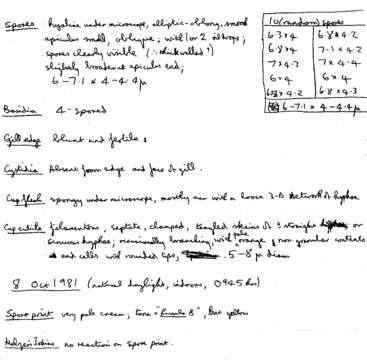 Spores hyaline under microscope, elliptic-oblong, smooth
apiculus small, oblique; with 1 or 2 oildrops;
spores clearly visible (∴ thickwalled?)
slightly broader at apiculus end;
6-7.1 × 4-4.4μ
10 (random) spores
6.3 × 4 6.8 × 4.2
6.8 × 4 7.1 × 4.2
7 × 4.3 7 × 4.4
6 × 4 6 × 4
6.8 × 4.2 6.8 × 4.3
6-7.1 × 4-4.4μ
Basidia 4-spored
Gill edge blunt and fertile
Cystidia Absent from edge and face of gill.
Cap flesh spongy under microscope, mostly air with a loose 3-D network of hyphae
Cap cuticle filamentous, septate, clamped, tangled skeins of straight or
sinuous hyphae; occasionally branching, with pale orange, non granular contents
end cells with rounded tips, 5-8μ diam
8 Oct 1981 (natural daylight, indoors, 0945 hrs)
Spore print very pale cream; tone = "Romells B", but yellow
Melzer's Iodine no reaction on spore print.